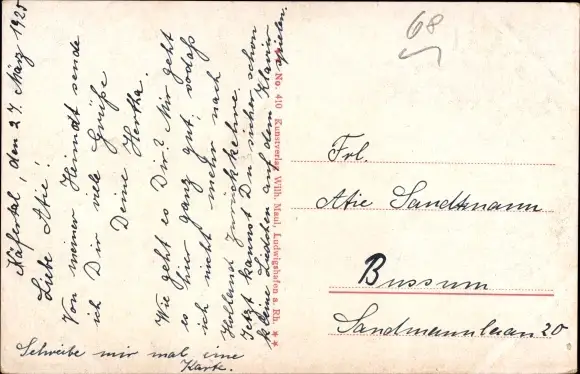 Käfertal, den 27. März 1925
Liebe Atie!
Von meiner Heimat sende
ich Dir viele Grüße
Deine Hertha.
Wie geht es Dir? Mir geht
es hier ganz gut, sodaß
ich nicht mehr nach
Holland zurückkehre.
Jetzt kannst Du sicher schon
kleine Liedchen auf dem Klavier
spielen.
Schreibe mir mal eine
Karte.
No. 410 Kunstverlag Wilh. Maul, Ludwigshafen a. Rh. **
68
Frl.
Atie Sandtmann
Bussum
Sandmannlaan 20